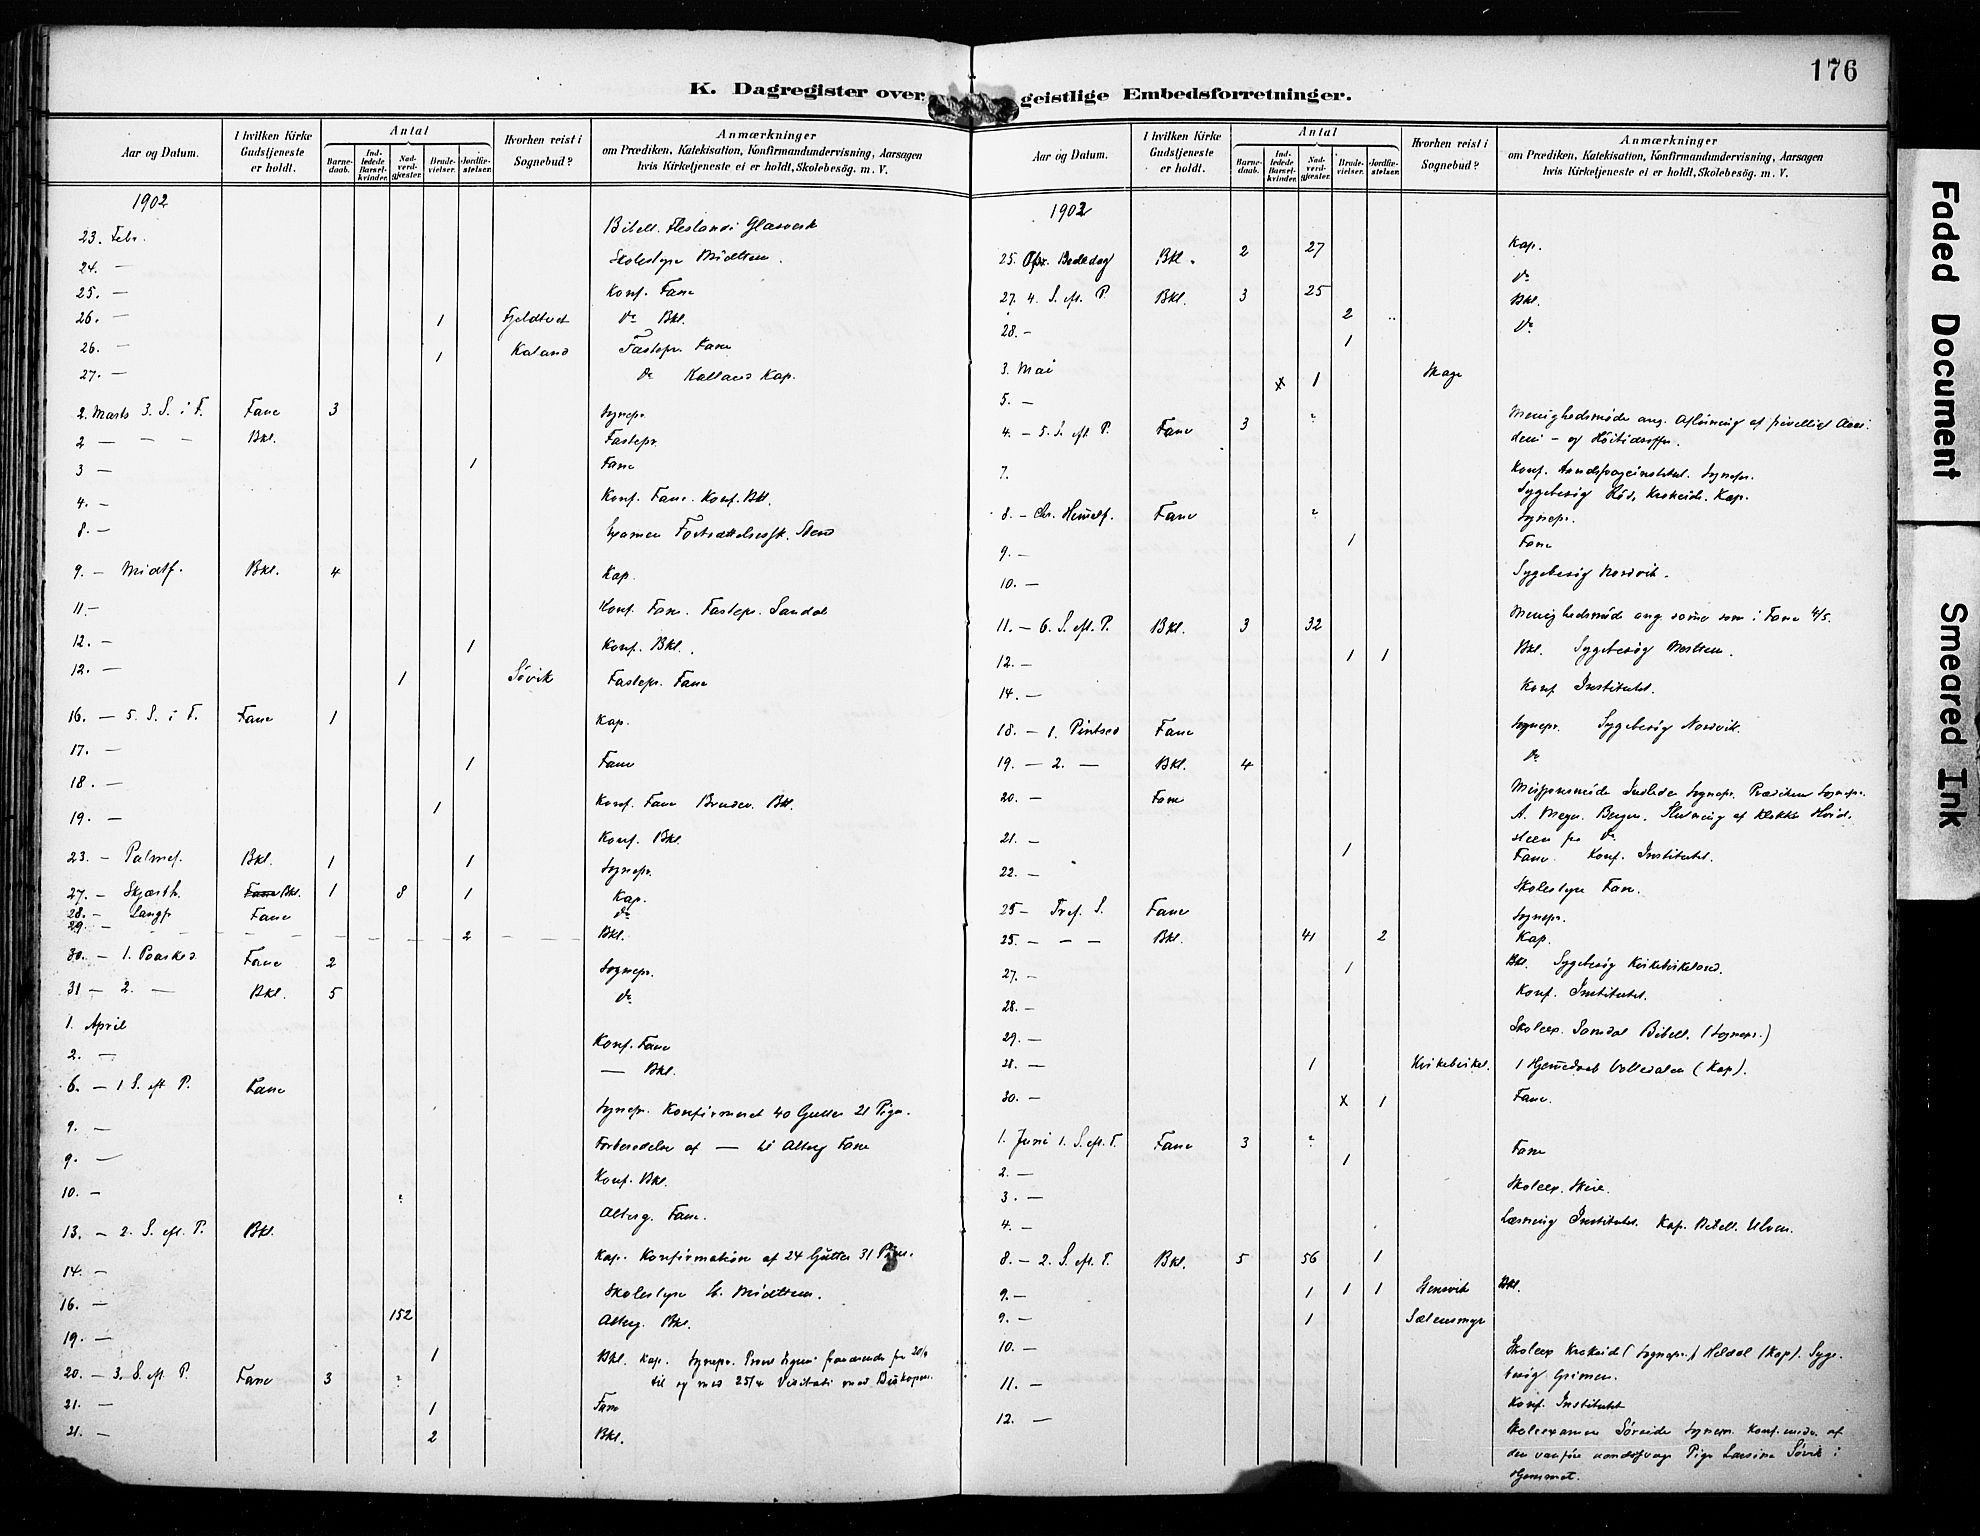 176
K. Dagregister over geistlige Embedsforretninger.
Aar og Datum. I hvilken Kirke Gudstjeneste er holdt. Antal Barnedaab. Indledede Barselkvinder. Nadverdgjester. Brudevielser. Jordfæstelser. Hvorhen reist i Sognebud? Anmærkninger om Prædiken, Katekisation, Konfirmandundervisning, Aarsagen hvis Kirketjeneste ei er holdt, Skolebesøg. m. V.
1902
23. Febr. Bibell. Glasverk
24. — Skolestyre Midttun.
25. — Konf. Fane
26. — 1 Fjeldtvet Do Bkl.
26. — 1 Kaland Fastepr. Fane
27. — Do Kalland Kap.
2. Marts 3. S. i F. Fane 3 Sognepr.
2 — — — Bkl. Fastepr.
3 — 1 Fane
4. — Konf. Fane. Konf. Bkl.
8. — Examen Fortsættelsessk. Stend
9. — Midtf. Bkl. 4 Kap.
11. — Konf. Fane. Fastepr. Sandal
12. — 1 Konf. Bkl.
12. — 1 Søvik Fastepr. Fane
16. — 5. S. i F. Fane 1 Kap.
17. —
18. — 1 Fane
19. — 1 Konf. Fane Bkl.
Konf. Bkl.
23. — Palmes. Bkl. 1 1 Sognepr.
27. — Skjærth. Fane Bkl. 1 8 1 Kap.
28. — Langfr. Fane Do
29. — 2 Bkl.
30. — 1. Paasked Fane 2 Sognepr.
31 — 2. — Bkl. 5 Do
1. April
2. — Konf. Fane
— Bkl.
6. — 1 S. eft P. Fane
Sognepr. Konfirmeret 40 Gutter 21 Piger.
9. — Forberedelse af — til Alterg Fane
9. —
10. — Konf. Bkl.
Alterg. Fane.
13. — 2. S. eft. P. Bkl.
Kap. Konfirmation af 24 Gutter 31 Piger.
14. —
16. — Skolestyre Midttun.
152 Alterg. Bkl.
19. — 1 Bkl. Kap. Sognepr. fraværende fra 20/4
20. — 3. S. eft. P. Fane 3 til og med 25/4 Visitats med Biskopen.
21. — 1 Fane
21. — 2 Bkl.
Aar og Datum. I hvilken Kirke Gudstjeneste er holdt. Antal Barnedaab. Indledede Barselkvinder. Nadverdgjester. Brudevielser. Jordfæstelser. Hvorhen reist i Sognebud? Anmærkninger om Prædiken, Katekisation, Konfirmandundervisning, Aarsagen hvis Kirketjeneste ei er holdt, Skolebesøg. m. V.
1902
25. Bededag Bkl. 2 27 Kap.
27. 4. S. eft. P. Bkl. 3 25 Do
28. — 2 Bkl.
1 Do
3. Mai x 1 Skage
5. —
4. — 5. S. eft. P. Fane 3 Menighedsmøde ang. Afløsning af frivilligt
— og Høitidsoffer.
7. Konf. Aandssvageinstitut. Sognepr.
Sygebesøg Krokeide. Kap.
8. — Chr. Himelf. Fane Sognepr.
9. — 1 Fane
10. — Sygebesøg Nordvik.
11. — 6. S. eft. P. Bkl. 3 32 Menighedsmøde ang. samme som i Fane 4/5.
12. — 1 1 Bkl. Sygebesøg
14. — Konf Institutet.
18. — 1. Pintsed Fane Sognepr. Sygebesøg Nordvik.
19. — 2. — Bkl. 4 Do
20. — Fane Missionsmøde Sognepr. Prædiken Sognepr.
A. Meyer. Bergen.
21. — 1 Fane. Konf. Institutet.
22. — Skolestyre Fane.
25 — Tref. S. Fane Sognepr.
25. — — — Bkl. 41 2 Kap.
27. — 1 Bkl. Sygebesøg Kirkebirkeland.
28. — Konf. Institutet.
29. — Skoleex. Samdal Bibell. (Sognepr.)
28. — 1 Kirkebirkel. 1 Hjemedaab (Kap).
30. — x 1 Fane.
1. Juni 1. S. eft. T. Fane 3
2. — 1 Fane
3. — Skoleex.
4. — Læsning Institutet. Kap. Bibell. Ulven.
8. — 2. S. eft. T. Bkl. 5 56 1
9. — 1 1 1 Bkl.
9. — 1 Sælensmyr
10. — Skoleex Krokeid (Sognepr.) Heldal (Kap). Syge-
besøg Grimen.
11. — Konf. Institutet
12. — Skoleexamen Søreide Sognepr. Konf. af
den vanføre aandssvage Pige Søvik i
Hjemmet.
Faded Document
Smeared Ink